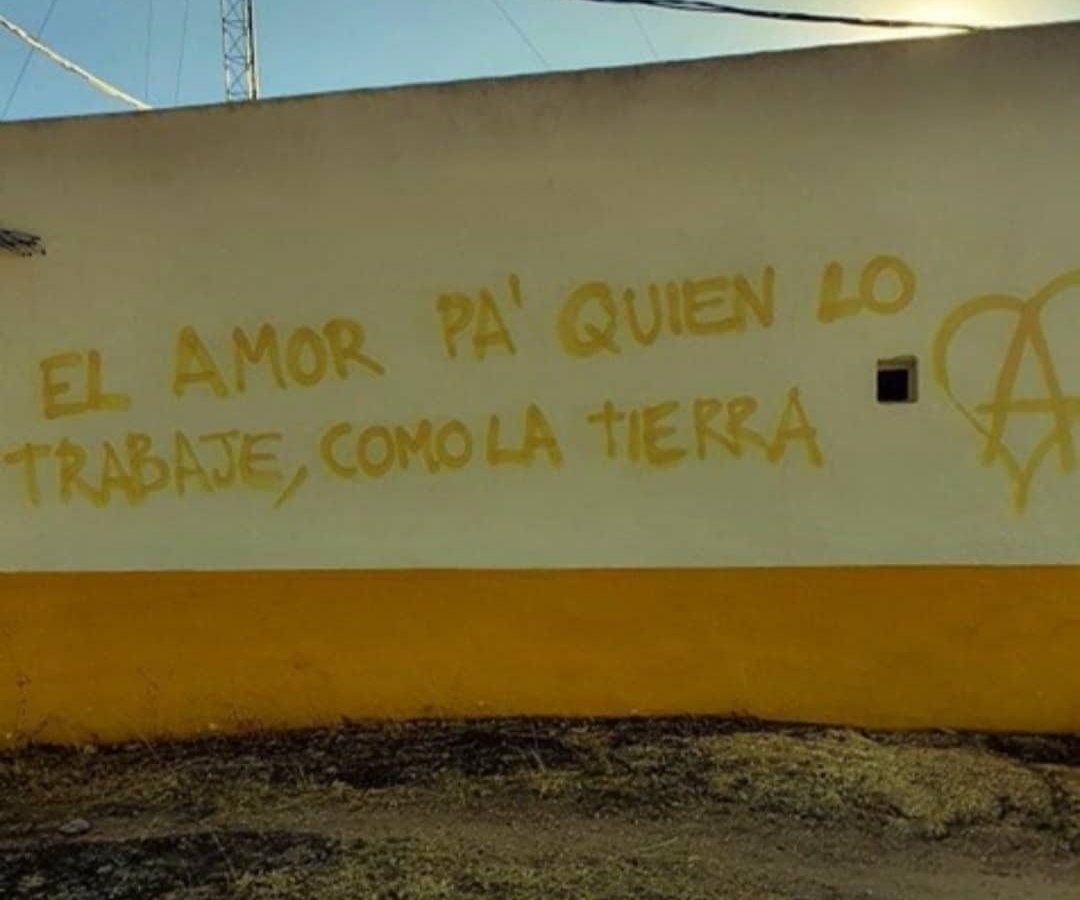 EL AMOR PA' QUIEN LO
TRABAJE, COMO LA TIERRA
A